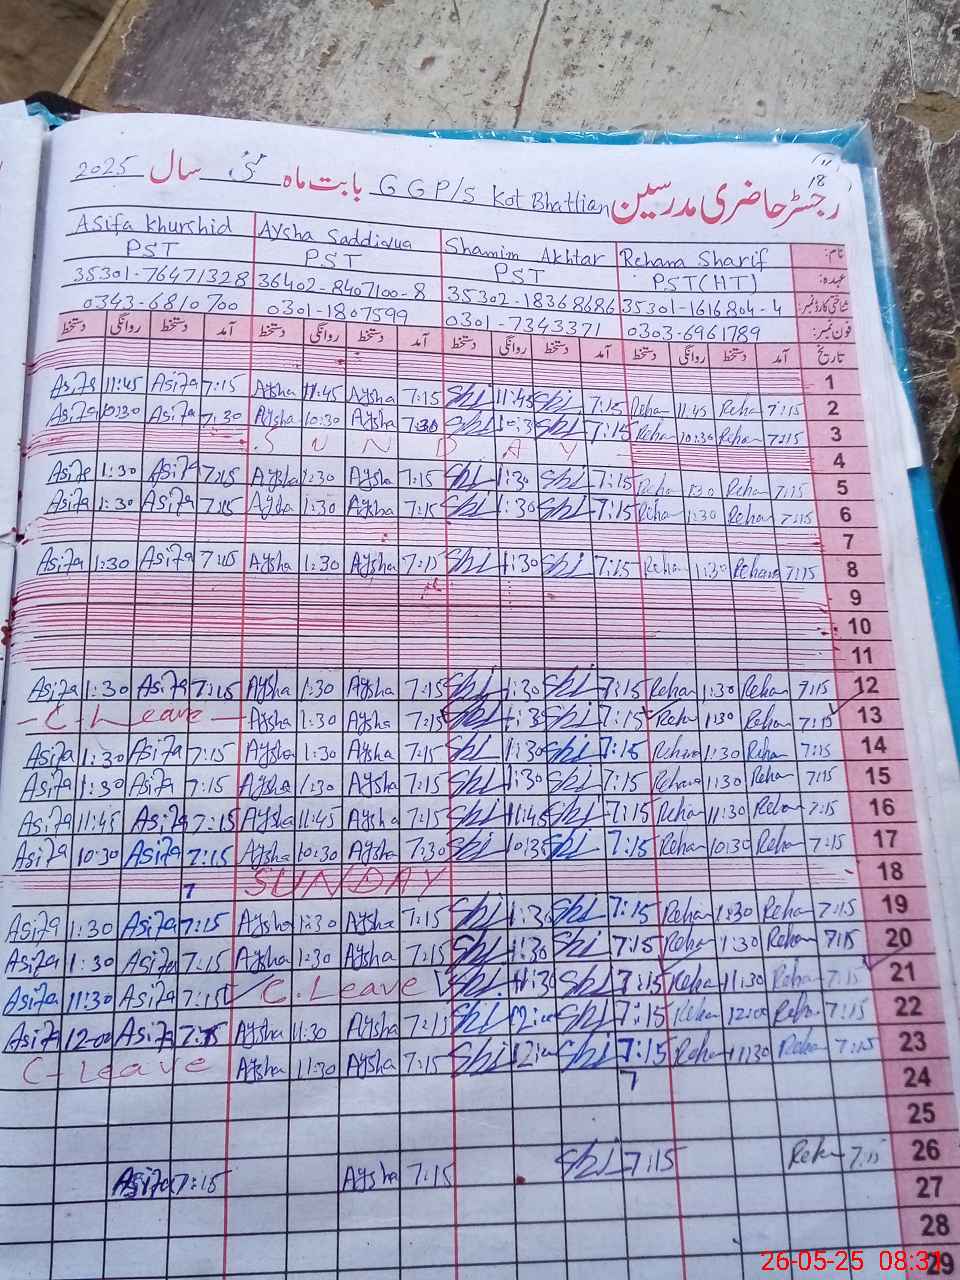 رجسٹر حاضری مدرسین G G P/S Kot Bhattian بابت ماہ مئی سال 2025
18
نام: Rehana Sharif Shamim Akhtar Aysha Saddiqua Asifa Khurshid
عہدہ: PST(HT) PST PST PST
شناختی کارڈ نمبر: 35301-1616804-4 35302-18368686 36402-8407100-8 35301-76471328
فون نمبر: 0303-6961789 0301-7343371 0301-1807599 0343-6810700
تاریخ آمد دستخط روانگی دستخط آمد دستخط روانگی دستخط آمد دستخط روانگی دستخط آمد دستخط روانگی دستخط
1
2 7:15 Rehan 11:45 Rehan 7:15 11:45 7:15 Aysha 11:45 Aysha 7:15 Asifa 11:45 Asifa
3 7:15 Rehan 10:30 Rehan 7:15 7:30 Aysha 10:30 Aysha 7:30 Asifa 10:30 Asifa
4 S U N D A Y
5 7:15 Rehan 1:30 Rehan 7:15 1:30 7:15 Aysha 1:30 Aysha 7:15 Asifa 1:30 Asifa
6 7:15 Rehan 1:30 Rehan 7:15 1:30 7:15 Aysha 1:30 Aysha 7:15 Asifa 1:30 Asifa
7
8 7:15 Rehana 1:30 Rehan 7:15 1:30 7:15 Aysha 1:30 Aysha 7:15 Asifa 1:30 Asifa
9
10
11
12 7:15 Rehan 1:30 Rehan 7:15 1:30 7:15 Aysha 1:30 Aysha 7:15 Asifa 1:30 Asifa
13 7:15 Rehan 1:30 Rehan 7:15 1:30 7:15 Aysha 1:30 Aysha C-Leave
14 7:15 Rehan 1:30 Rehana 7:15 1:30 7:15 Aysha 1:30 Aysha 7:15 Asifa 1:30 Asifa
15 7:15 Rehan 1:30 Rehana 7:15 1:30 7:15 Aysha 1:30 Aysha 7:15 Asifa 1:30 Asifa
16 7:15 Rehan 11:30 Rehan 7:15 11:45 7:15 Aysha 11:45 Aysha 7:15 Asifa 11:45 Asifa
17 7:15 Rehan 10:30 Rehan 7:15 10:30 7:30 Aysha 10:30 Aysha 7:15 Asifa 10:30 Asifa
18 SUNDAY
19 7:15 Rehan 1:30 Rehan 7:15 1:30 7:15 Aysha 1:30 Aysha 7:15 Asifa 1:30 Asifa
20 7:15 Rehan 1:30 Rehan 7:15 1:30 7:15 Aysha 1:30 Aysha 7:15 Asifa 1:30 Asifa
21 7:15 Rehan 11:30 Rehan 7:15 11:30 C.Leave 7:15 Asifa 11:30 Asifa
22 7:15 Rehan 12:00 Rehan 7:15 7:15 Aysha 11:30 Aysha 7:15 Asifa 12:00 Asifa
23 7:15 Rehan 11:30 Rehan 7:15 7:15 Aysha 11:30 Aysha C-Leave
24
25
26 7:15 Rehan 7:15 7:15 Aysha 7:15 Asifa
27
28
29
26-05-25 08:31